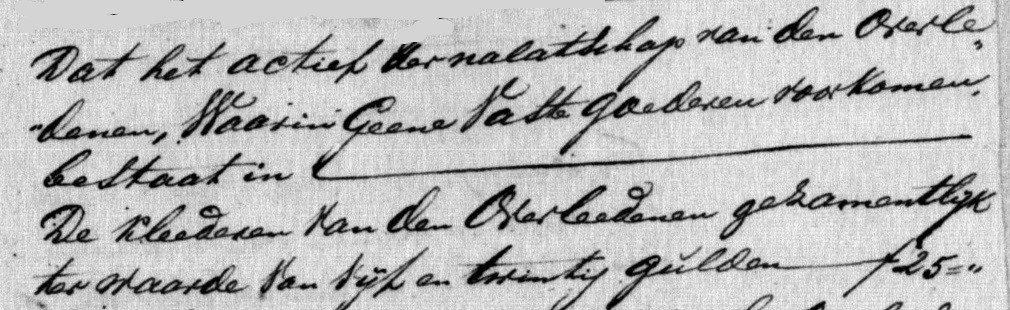 Dat het actief der nalatschap van den Overle„
„denen, Waarin Geene Vaste goederen voorkomen,
bestaat in
De kleederen van den Overleedenen gezamentlijk
ter waarde van vijf en twintig gulden f 25=„